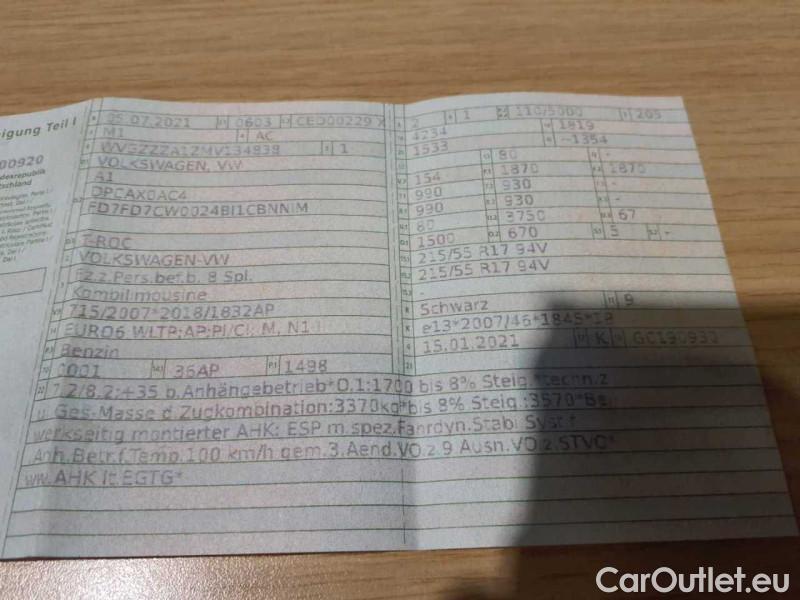 igung Teil I
00920
desrepublik
tschland
05.07.2021 0603 CED00229
M1 AC
WVGZZZA1ZMV134838 1
VOLKSWAGEN, VW
A1
DPCAX0AC4
FD7FD7CW0024BI1CBNNIM
T-ROC
VOLKSWAGEN-VW
Fz.z.Pers.bef.b. 8 Spl.
Kombilimousine
715/2007*2018/1832AP
EURO6 WLTP;AP;PI/CI; M, N1 I
Benzin
0001 36AP 1498
2 1 110/5000 205
4234 1819
1533 ~1354
80 -
154 1870 1870
990 930 -
990 930 -
80 3750 67
1500 670 5 -
215/55 R17 94V
215/55 R17 94V
-
Schwarz 9
e13*2007/46*1845*
15.01.2021 K GC190932
7.2/8.2:+35 b.Anhängebetrieb*O.1:1700 bis 8% Steig.*techn.z
u. Ges-Masse d Zugkombination:3370kg*bis 8% Steig.:3570*Be
werkseitig montierter AHK: ESP m.spez.Fahrdyn.Stabi Syst.f.
Anh.Betr.f.Temp.100 km/h gem.3.Aend.VO.z.9 Ausn.VO.z.STVO*
ww.AHK lt.EGTG*
CarOutlet.eu